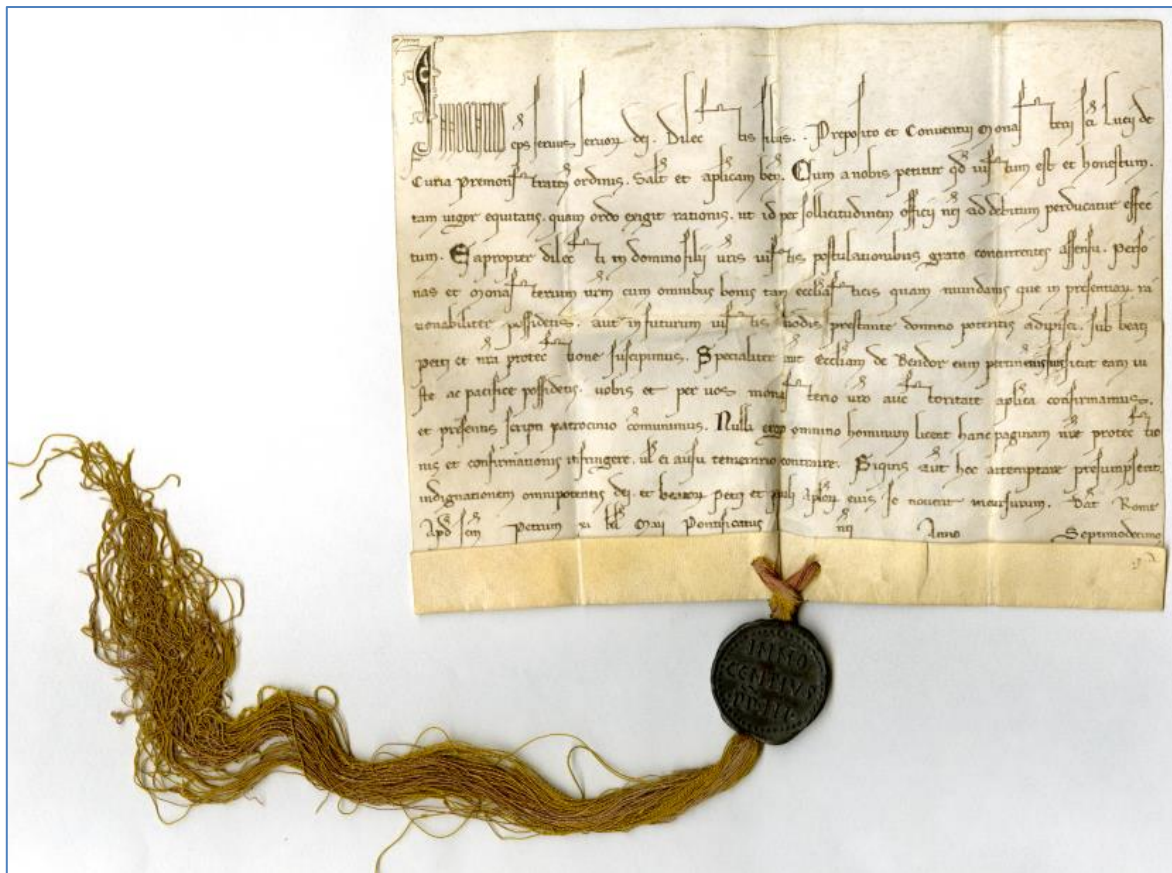 INNOCENTIUS eps servus servor dei. Dilectis filiis . . Preposito et Conventui Monasterii sci Lucij de
Curia Premonstraten ordinis. Salt et aplicam ben. Cum a nobis petitur qd iustum est et honestum.
tam vigor equitatis. quam ordo exigit rationis. ut id per sollicitudinem officij nri ad debitum perducatur effec
tum. Eapropter dilecti in domino filij vris iustis postulationibus grato concurrentes assensu. perso
nas et monasterium vrm cum omnibus bonis tam ecclesiasticis quam mundanis que in presentiar. ra
tionabiliter possidetis. aut in futurum iustis modis prestante domino poteritis adipisci. sub beati
petri et nra protectione suscipimus. Specialiter aut eccliam de Bendor cum pertinentijs suis sicut eam iu
ste ac pacifice possidetis. vobis et per vos monasterio vro auctoritate aplica confirmamus.
et presentis scripti patrocinio comunimus. Nulli ergo omnino hominum liceat hanc paginam nre protectio
nis et confirmationis infringere. vel ei ausu temerario contraire. Siquis aut hoc attemptare presumpserit.
indignationem omnipotentis dei. et beator petri et pauli aplor eius se noverit incursurum. Dat Rome
Apd scm Petrum xi kl Maii Pontificatus nri Anno Septimodecimo
INNO
CENTIUS
PP III